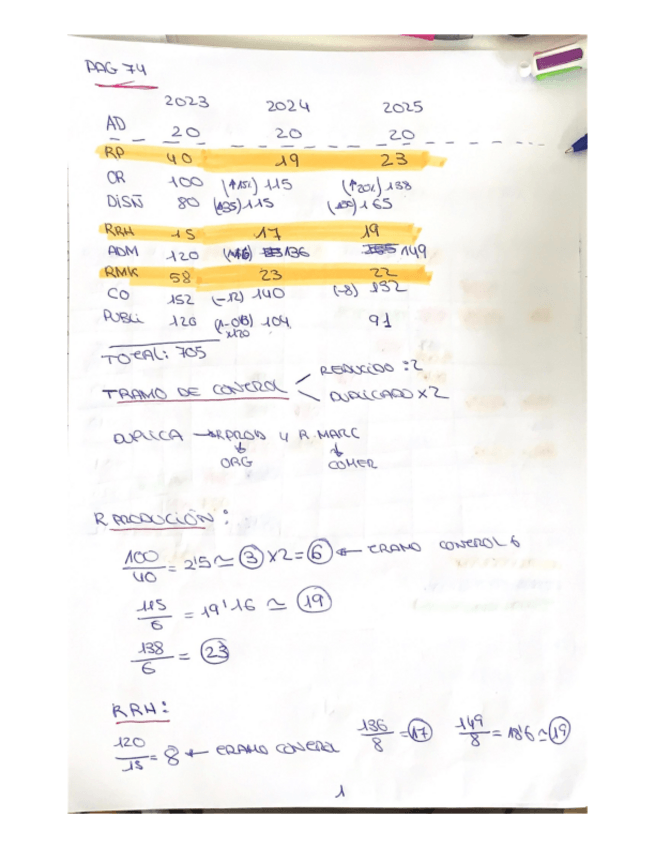 PAG 74
2023 2024 2025
AD 20 20 20
RP 40 19 23
OR 100 (↑15%) 115 (↑20%) 138
DISÑ 80 (+35) 115 165
RRH 15 17 19
ADM 120 136 149
RMK 58 23 22
CO 152 (-12) 140 (-8) 132
PUBLI 120 104 91
x120
TOTAL: 705
TRAMO DE CONTROL REDUCIDO :2
DUPLICADO X2
DUPLICA → RPROD Y R. MARC
ORG COMER
R PRODUCIÓN:
100/40 = 2'5 ≃ 3 x2 = 6 ← TRAMO CONTROL 6
115/6 = 19'16 ≃ 19
138/6 = 23
RRH:
120/15 = 8 ← TRAMO CONTROL 136/8 = 17 149/8 = 18'6 ≃ 19
1